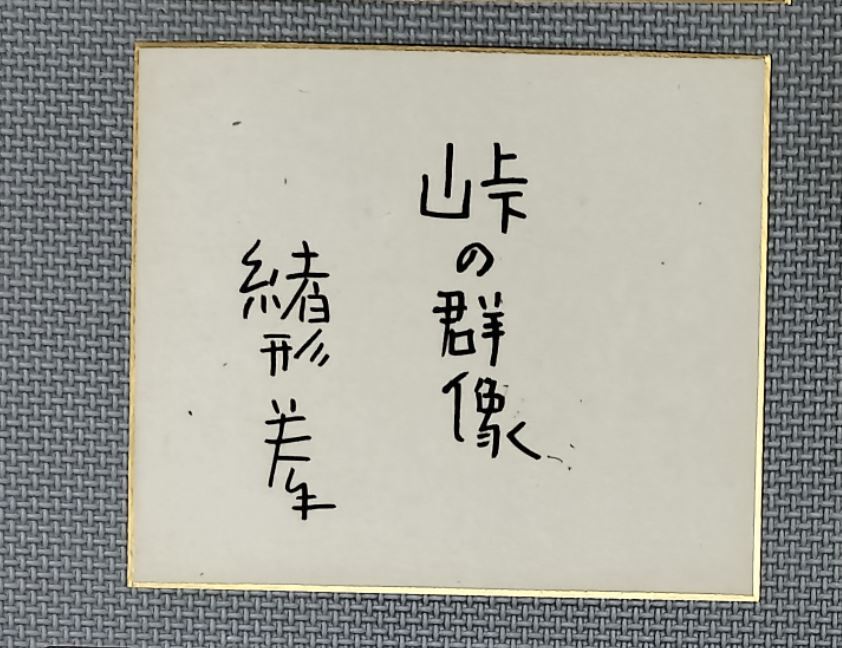 峠の群像
緒形拳